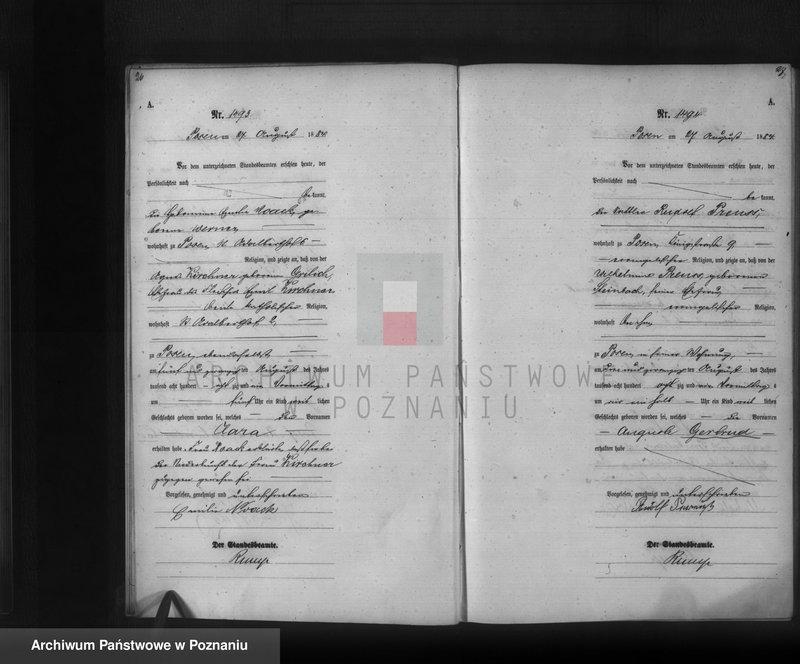 26
A.
Nr. 1493
Posen am 27 August 1884
Vor dem unterzeichneten Standesbeamten erschien heute, der
Persönlichkeit nach
be kannt,
Die Hebamme Emilie Noack, ge-
borene Werner,
wohnhaft zu Posen, St. Adalbertstr 6
Religion, und zeigte an, daß von der
Agnes Kirchner geborenen
Ehefrau des Emil Kirchner
beide katholischer Religion,
wohnhaft St Adalbertstr 2,
zu Posen, ebendaselbst
am fünf und zwanzigsten August des Jahres
tausend acht hundert acht zig und vier Vormittags
um fünf Uhr ein Kind weib lichen
Geschlechts geboren worden sei, welches den Vornamen
Clara
erhalten habe. Frau Noack erklärte, daß sie bei
der Niederkunft der Frau Kirchner
zugegen gewesen sei
Vorgelesen, genehmigt und unterschrieben
Emilie Noack
Der Standesbeamte.
27.
A.
Nr. 1494
Posen am 27 August 1884
Vor dem unterzeichneten Standesbeamten erschien heute, der
Persönlichkeit nach
be kannt,
Der Rudolf Preuss,
wohnhaft zu Posen, 9
evangelischer Religion, und zeigte an, daß von der
Wilhelmine Preuss, geborenen
Steinbach, seiner Ehefrau
evangelischer Religion,
wohnhaft bei ihm
zu Posen in seiner Wohnung,
am August des Jahres
tausend acht hundert acht zig und vier Vormittags
um Uhr ein Kind weib lichen
Geschlechts geboren worden sei, welches die Vornamen
Auguste Gertrud
erhalten habe
Vorgelesen, genehmigt und unterschrieben
Rudolf
Der Standesbeamte.
ARCHIWUM PAŃSTWOWE
POZNANIU
Archiwum Państwowe w Poznaniu